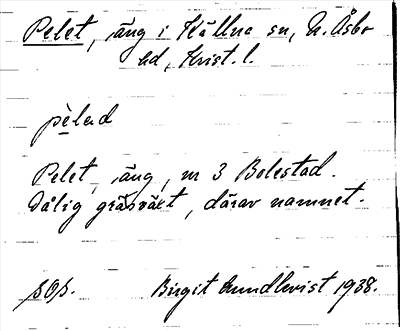 Pelet, äng i Källna sn, N. Åsbo
hd, Krist. l.
pèlad
Pelet, äng, nr 3 Bolestad.
Dålig gräsväxt, därav namnet.
sOs. Birgit Lundkvist 1938.